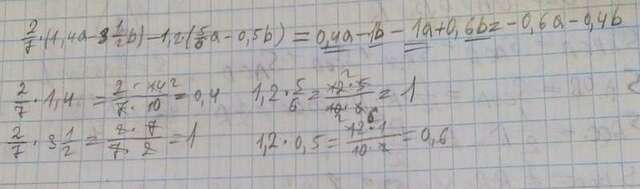 2/7·(1,4a-3 1/2b)-1,2(5/6a-0,5b)=0,4a-1b-1a+0,6b=-0,6a-0,4b
2/7·1,4=2·14²/7·10=0,4 1,2·5/6=12²·5/10·6=1
2/7·3 1/2=2·7/7·2=1 1,2·0,5=12⁶·1/10·2=0,6